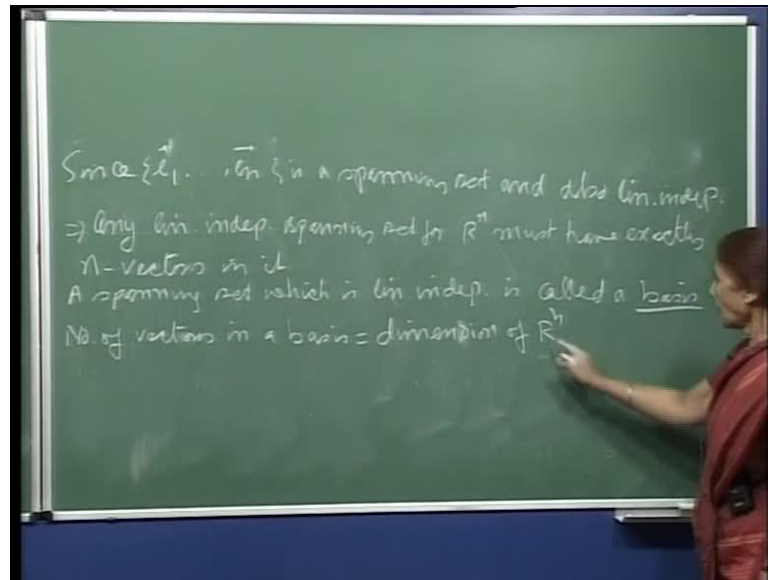 Since {e⃗₁ . . . , e⃗n} is a spanning set and also lin. indep.
⇒ Any lin. indep. spanning set for Rⁿ must have exactly
n-vectors in it
A spanning set which is lin. indep. is called a basis
No. of vectors in a basis = dimension of Rⁿ